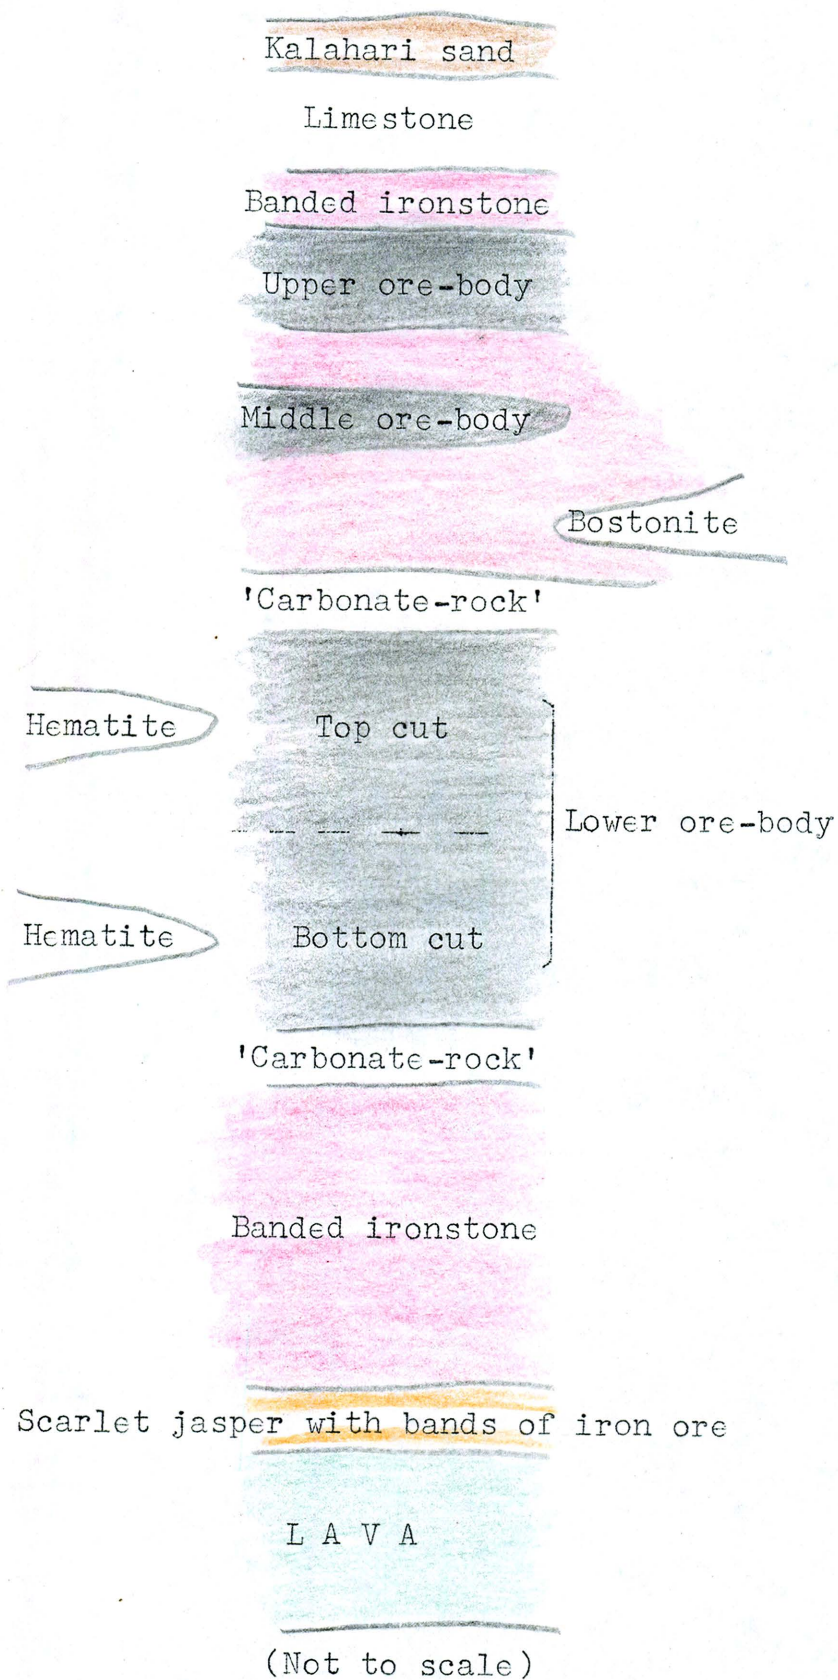 Kalahari sand
Limestone
Banded ironstone
Upper ore-body
Middle ore-body
Bostonite
'Carbonate-rock'
Hematite
Top cut
Lower ore-body
Hematite
Bottom cut
'Carbonate-rock'
Banded ironstone
Scarlet jasper with bands of iron ore
L A V A
(Not to scale)